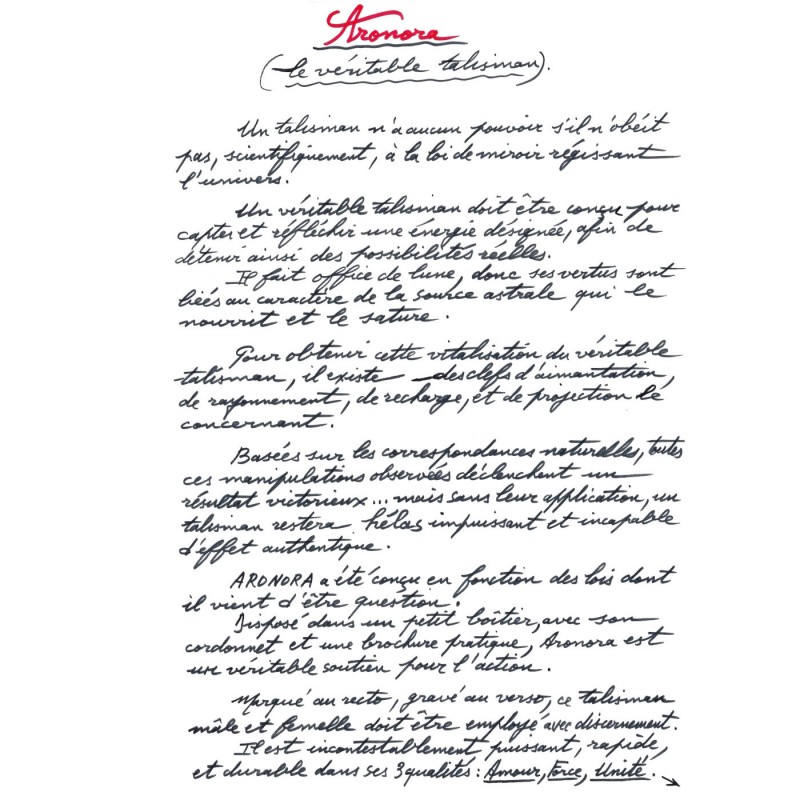 Aronora
(le véritable talisman).
Un talisman n'a aucun pouvoir s'il n'obéit
pas, scientifiquement, à la loi de miroir régissant
l'univers.
Un véritable talisman doit être conçu pour
capter et réfléchir une énergie désignée, afin de
détenir ainsi des possibilités réelles.
Il fait office de lune, donc ses vertus sont
liées au caractère de la source astrale qui le
nourrit et le sature.
Pour obtenir cette vitalisation du véritable
talisman, il existe des clefs d'aimantation,
de rayonnement, de recharge, et de projection le
concernant.
Basées sur les correspondances naturelles, toutes
ces manipulations observées déclenchent un
résultat victorieux... mais sans leur application, un
talisman restera hélas impuissant et incapable
d'effet authentique.
ARONORA a été conçu en fonction des lois dont
il vient d'être question.
Disposé dans un petit boîtier, avec son
cordonnet et une brochure pratique, Aronora est
un véritable soutien pour l'action.
Marqué au recto, gravé au verso, ce talisman
mâle et femelle doit être employé avec discernement.
Il est incontestablement puissant, rapide,
et durable dans ses 3 qualités : Amour, Force, Unité.